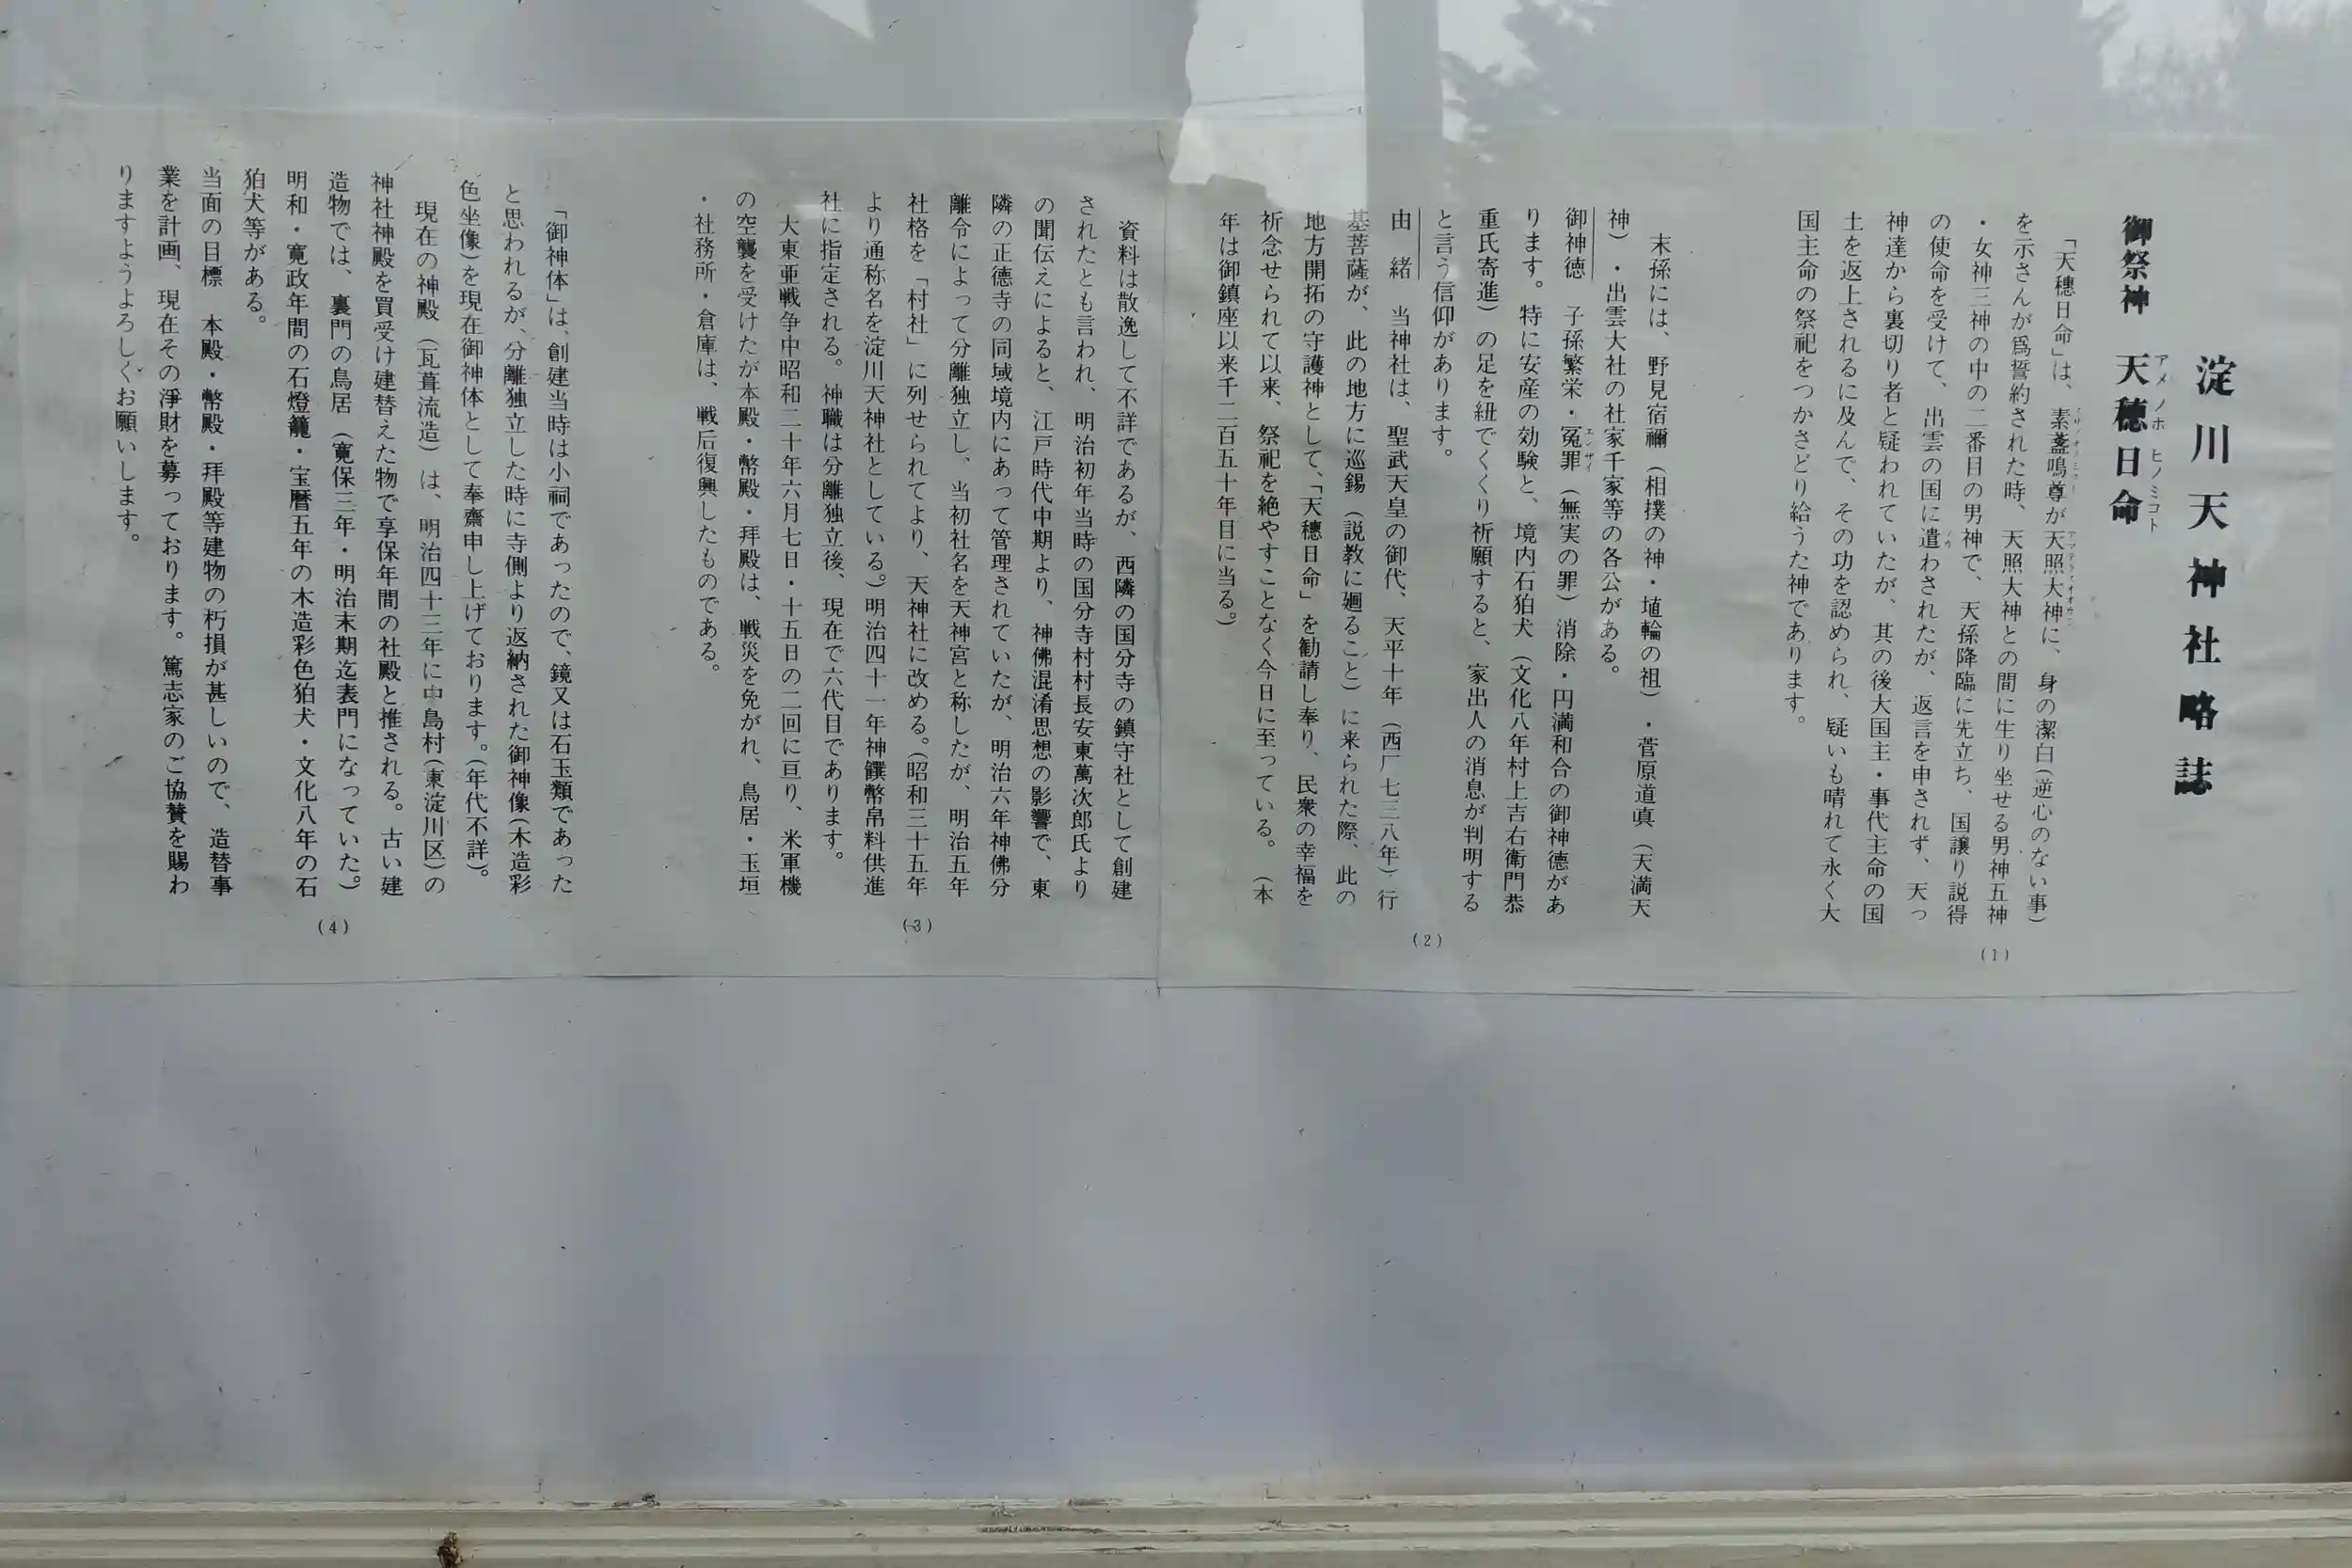 淀川天神社略誌
御祭神　天穂日命
アメノホ　ヒノミコト
「天穂日命」は、素盞鳴尊が天照大神に、身の潔白（逆心のない事）
を示さんが爲誓約された時、天照大神との間に生り坐せる男神五神
・女神三神の中の二番目の男神で、天孫降臨に先立ち、国譲り説得
の使命を受けて、出雲の国に遣わされたが、返言を申されず、天っ
神達から裏切り者と疑われていたが、其の後大国主・事代主命の国
土を返上されるに及んで、その功を認められ、疑いも晴れて永く大
国主命の祭祀をつかさどり給うた神であります。
(1)
末孫には、野見宿禰（相撲の神・埴輪の祖）・菅原道眞（天満天
神）・出雲大社の社家千家等の各公がある。
御神徳　子孫繁栄・冤罪（無実の罪）消除・円満和合の御神徳があ
エンザイ
ります。特に安産の効験と、境内石狛犬（文化八年村上吉右衛門恭
重氏寄進）の足を紐でくくり祈願すると、家出人の消息が判明する
と言う信仰があります。
由　緒　当神社は、聖武天皇の御代、天平十年（西厂七三八年）行
基菩薩が、此の地方に巡錫（説教に廻ること）に来られた際、此の
地方開拓の守護神として、「天穂日命」を勧請し奉り、民衆の幸福を
祈念せられて以来、祭祀を絶やすことなく今日に至っている。（本
年は御鎮座以来千二百五十年目に当る。）
(2)
資料は散逸して不詳であるが、西隣の国分寺の鎮守社として創建
されたとも言われ、明治初年当時の国分寺村村長安東萬次郎氏より
の聞伝えによると、江戸時代中期より、神佛混淆思想の影響で、東
隣の正徳寺の同域境内にあって管理されていたが、明治六年神佛分
離令によって分離独立し、当初社名を天神宮と称したが、明治五年
社格を「村社」に列せられてより、天神社に改める。（昭和三十五年
より通称名を淀川天神社としている。）明治四十一年神饌幣帛料供進
社に指定される。神職は分離独立後、現在で六代目であります。
大東亜戦争中昭和二十年六月七日・十五日の二回に亘り、米軍機
の空襲を受けたが本殿・幣殿・拜殿は、戦災を免がれ、鳥居・玉垣
・社務所・倉庫は、戦后復興したものである。
(3)
「御神体」は、創建当時は小祠であったので、鏡又は石玉類であった
と思われるが、分離独立した時に寺側より返納された御神像（木造彩
色坐像）を現在御神体として奉齋申し上げております。（年代不詳）。
現在の神殿（瓦葺流造）は、明治四十三年に中島村（東淀川区）の
神社神殿を買受け建替えた物で享保年間の社殿と推される。古い建
造物では、裏門の鳥居（寛保三年・明治末期迄表門になっていた。）
明和・寛政年間の石燈籠・宝暦五年の木造彩色狛犬・文化八年の石
狛犬等がある。
当面の目標　本殿・幣殿・拜殿等建物の朽損が甚しいので、造替事
業を計画、現在その淨財を募っております。篤志家のご協賛を賜わ
りますようよろしくお願いします。
(4)